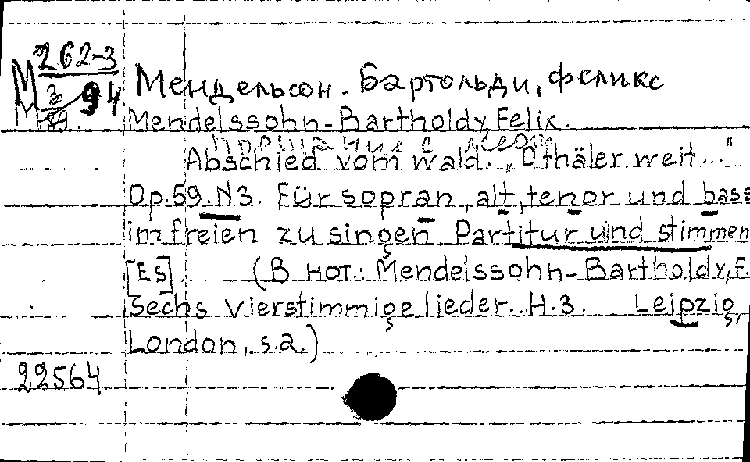 М 262-3
94
Мендельсон-Бартольди, Феликс
Mendelssohn-Bartholdy, Felix.
Прощание с лесом
Abschied vom wald. „O thäler weit..."
Op.59.N3. Für sopran, alt, tenor und bass
im freien zu singen Partitur und stimmen
[Es] (В нот.: Mendelssohn-Bartholdy, F
Sechs vierstimmige lieder. H.3. Leipzig,
London, s.a.)
22564